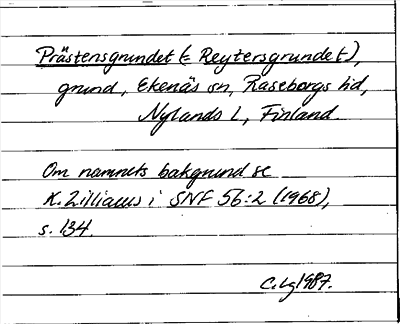 Prästensgrundet (= Reytersgrundet),
grund, Ekenäs sn, Raseborgs hd,
Nylands l, Finland.
Om namnets bakgrund se
K. Zilliacus i SNF 56:2 (1968),
s. 134.
C. Lg 1987.